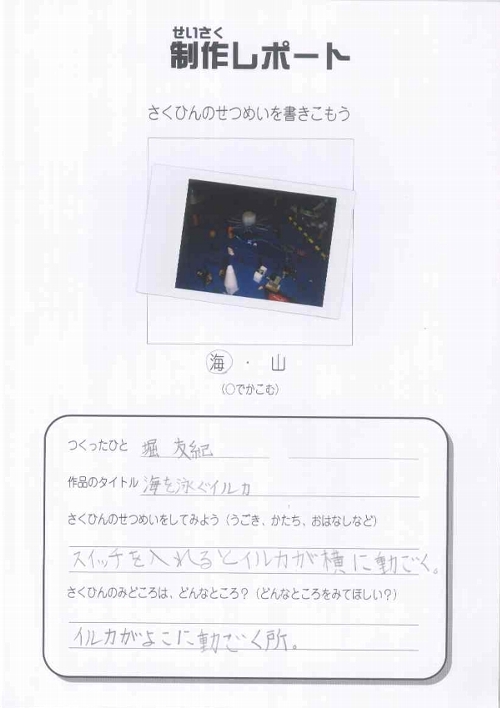 せいさく
制作レポート
さくひんのせつめいを書きこもう
海・山
(○でかこむ)
つくったひと 堀 友紀
作品のタイトル 海を泳ぐイルカ
さくひんのせつめいをしてみよう(うごき、かたち、おはなしなど)
スイッチを入れるとイルカが横に動ごく。
さくひんのみどころは、どんなところ?(どんなところをみてほしい?)
イルカがよこに動ごく所。